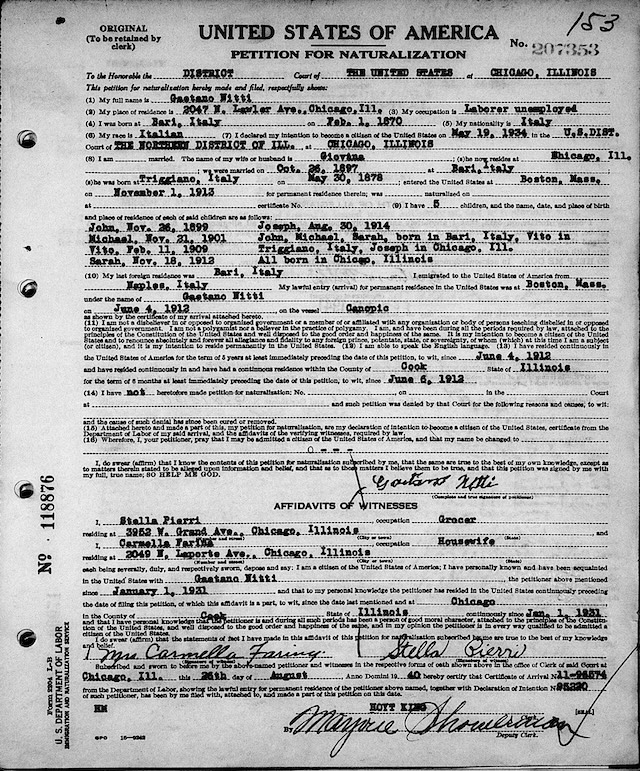 153
ORIGINAL
(To be retained by
clerk)
UNITED STATES OF AMERICA
PETITION FOR NATURALIZATION
No. 207353
To the Honorable the DISTRICT Court of THE UNITED STATES at CHICAGO, ILLINOIS
This petition for naturalization hereby made and filed, respectfully shows:
(1) My full name is Gaetano Nitti
(2) My place of residence is 2047 N. Lawler Ave., Chicago, Ill. (3) My occupation is Laborer unemployed
(4) I was born at Bari, Italy on Feb. 1, 1870 (5) My nationality is Italy
(6) My race is Italian (7) I declared my intention to become a citizen of the United States on May 19, 1934 in the U.S.DIST.
Court of THE NORTHERN DISTRICT OF ILL. at CHICAGO, ILLINOIS
(8) I am married. The name of my wife or husband is Giovina ; (s)he now resides at Chicago, Ill.
; we were married on Oct. 26, 1897 at Bari, Italy
(s)he was born at Triggiano, Italy on May 30, 1878 ; entered the United States at Boston, Mass.
on November 1, 1913 for permanent residence therein; was naturalized on
at certificate No. (9) I have 5 children, and the name, date, and place of birth
and place of residence of each of said children are as follows:
John, Nov. 26, 1899 Joseph, Aug. 30, 1914
Michael, Nov. 21, 1901 John, Michael, Sarah, born in Bari, Italy, Vito in
Vito, Feb. 11, 1909 Triggiano, Italy, Joseph in Chicago, Ill.
Sarah, Nov. 18, 1912 All born in Chicago, Illinois
(10) My last foreign residence was Bari, Italy I emigrated to the United States of America from
Naples, Italy My lawful entry (arrival) for permanent residence in the United States was at Boston, Mass.
under the name of Gaetano Nitti
on June 4, 1912 on the vessel Canopic
as shown by the certificate of my arrival attached hereto.
(11) I am not a disbeliever in or opposed to organized government or a member of or affiliated with any organization or body of persons teaching disbelief in or opposed
to organized government. I am not a polygamist nor a believer in the practice of polygamy. I am, and have been during all the periods required by law, attached to the
principles of the Constitution of the United States and well disposed to the good order and happiness of the same. It is my intention to become a citizen of the United
States and to renounce absolutely and forever all allegiance and fidelity to any foreign prince, potentate, state, or sovereignty, of whom (which) at this time I am a subject
(or citizen), and it is my intention to reside permanently in the United States. (12) I am able to speak the English language. (13) I have resided continuously in
the United States of America for the term of 5 years at least immediately preceding the date of this petition, to wit, since June 4, 1912
and have resided continuously in and have had a continuous residence within the County of Cook State of Illinois
for the term of 6 months at least immediately preceding the date of this petition, to wit, since June 6, 1912
(14) I have not heretofore made petition for naturalization: No. on in the Court
at and such petition was denied by that Court for the following reasons and causes, to wit:
and the cause of such denial has since been cured or removed.
(15) Attached hereto and made a part of this, my petition for naturalization, are my declaration of intention to become a citizen of the United States, certificate from the
Department of Labor of my said arrival, and the affidavits of the verifying witnesses, required by law.
(16) Wherefore, I, your petitioner, pray that I may be admitted a citizen of the United States of America, and that my name be changed to
I do swear (affirm) that I know the contents of this petition for naturalization subscribed by me, that the same are true to the best of my own knowledge, except as
to matters therein stated to be alleged upon information and belief, and that as to those matters I believe them to be true, and that this petition was signed by me with
my full, true name; SO HELP ME GOD.
Gaetano Nitti
(Complete and true signature of petitioner)
AFFIDAVITS OF WITNESSES
I, Stella Pierri occupation Grocer
residing at 3952 W. Grand Ave., Chicago, Illinois and
I, Carmella Farina occupation Housewife
residing at 2049 N. Laporte Ave., Chicago, Illinois
each being severally, duly, and respectively sworn, depose and say: I am a citizen of the United States of America; I have personally known and have been acquainted
in the United States with Gaetano Nitti the petitioner above mentioned
since January 1, 1931 and that to my personal knowledge the petitioner has resided in the United States continuously preceding
the date of filing this petition, of which this affidavit is a part, to wit, since the date last mentioned and at Chicago
in the County of Cook State of Illinois continuously since Jan. 1, 1931
and that I have personal knowledge that the petitioner is and during all such periods has been a person of good moral character, attached to the principles of the Constitu-
tion of the United States, and well disposed to the good order and happiness of the same, and in my opinion the petitioner is in every way qualified to be admitted a
citizen of the United States.
I do swear (affirm) that the statements of fact I have made in this affidavit of this petition for naturalization subscribed by me are true to the best of my knowledge
and belief.
Mrs Carmella Farina Stella Pierri
Subscribed and sworn to before me by the above-named petitioner and witnesses in the respective forms of oath shown above in the office of Clerk of said Court at
Chicago, Ill. this 26th day of August Anno Domini 1940 hereby certify that Certificate of Arrival No. 11-96574
from the Department of Labor, showing the lawful entry for permanent residence of the petitioner above named, together with Declaration of Intention No. 95220
of such petitioner, has been by me filed with, attached to, and made a part of this petition on this date.
HM HOYT KING [SEAL]
By Marjorie Showerman
Deputy Clerk.
GPO
No 118876
Form 2204 L-B
U. S. DEPARTMENT OF LABOR
IMMIGRATION AND NATURALIZATION SERVICE